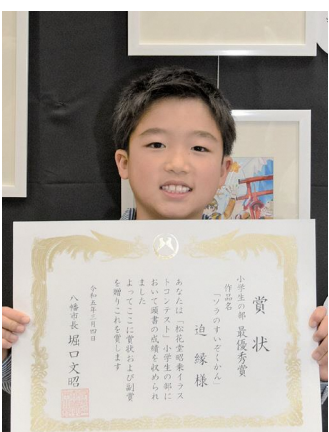 賞状
小学生の部 最優秀賞
作品名
「ソラのすいぞくかん」
迫 縁 様
あなたは「松花堂昭乗イラス
トコンテスト」小学生の部に
おいて頭書の成績を収められ
ました
よってここに賞状および副賞
を贈りこれを賞します
令和五年三月四日
八幡市長 堀口文昭